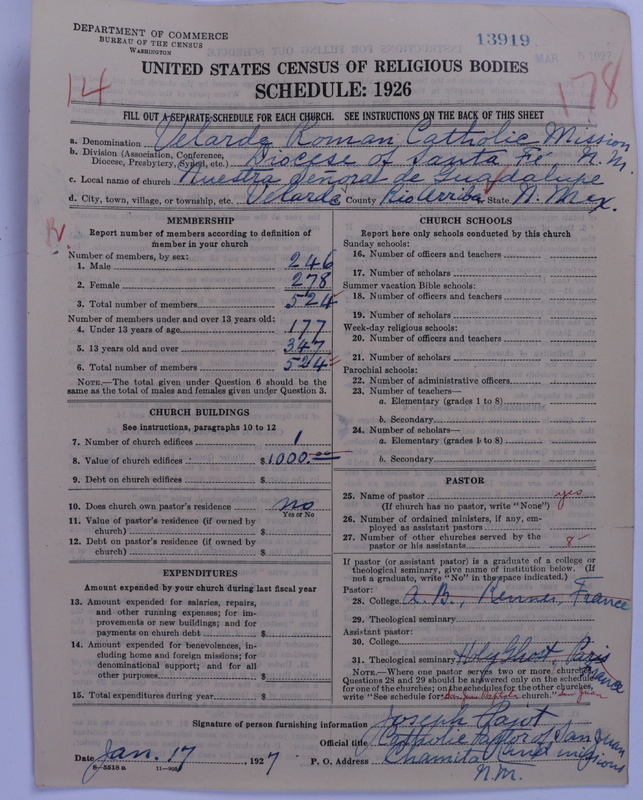 DEPARTMENT OF COMMERCE
BUREAU OF THE CENSUS
WASHINGTON
13919
14
178
UNITED STATES CENSUS OF RELIGIOUS BODIES
SCHEDULE: 1926
FILL OUT A SEPARATE SCHEDULE FOR EACH CHURCH. SEE INSTRUCTIONS ON THE BACK OF THIS SHEET
a. Denomination Velarde Roman Catholic Mission
b. Division (Association, Conference, Diocese, Presbytery, Synod, etc.) Diocese of Santa Fe, N. M.
c. Local name of church Nuestra Señora de Guadalupe
d. City, town, village, or township, etc. Velarde County Rio Arriba State N. Mex.
MEMBERSHIP
Report number of members according to definition of
member in your church
Number of members, by sex:
1. Male 246
2. Female 278
3. Total number of members 524
Number of members under and over 13 years old:
4. Under 13 years of age 177
5. 13 years old and over 347
6. Total number of members 524
NOTE.—The total given under Question 6 should be
same as the total of males and females given under Question 3.
CHURCH BUILDINGS
See instructions, paragraphs 10 to 12
7. Number of church edifices 1
8. Value of church edifices $1000.00
9. Debt on church edifices $
10. Does church own pastor's residence no
Yes or No
11. Value of pastor's residence (if owned by
church) $
12. Debt on pastor's residence (if owned by
church) $
EXPENDITURES
Amount expended by your church during last fiscal year
13. Amount expended for salaries, repairs,
and other running expenses; for im-
provements or new buildings; and for
payments on church debt $
14. Amount expended for benevolences, in-
cluding home and foreign missions; for
denominational support; and for all
other purposes $
15. Total expenditures during year $
CHURCH SCHOOLS
Report here only schools conducted by this church
Sunday schools:
16. Number of officers and teachers
17. Number of scholars
Summer vacation Bible schools:
18. Number of officers and teachers
19. Number of scholars
Week-day religious schools:
20. Number of officers and teachers
21. Number of scholars
Parochial schools:
22. Number of administrative officers
23. Number of teachers—
a. Elementary (grades 1 to 8)
b. Secondary
24. Number of scholars—
a. Elementary (grades 1 to 8)
b. Secondary
PASTOR
25. Name of pastor yes
(If church has no pastor, write "None")
26. Number of ordained ministers, if any, em-
ployed as assistant pastors
27. Number of other churches served by the
pastor or his assistants 8
If pastor (or assistant pastor) is a graduate of a college or
theological seminary, give name of institution below. (If
not a graduate, write "No" in the space indicated.)
Pastor:
28. College A. B., Rennes, France
29. Theological seminary
Assistant pastor:
30. College
31. Theological seminary Holy Ghost, Paris France
NOTE.—Where one pastor serves two or more churches,
Questions 28 and 29 should be answered only on the schedule
for one of the churches; on the schedules for the other churches,
write "See schedule for San Juan church." San Juan
Signature of person furnishing information Joseph Pajot
Official title Catholic Pastor of San Juan and missions
Date Jan. 17, 1927 P. O. Address Chamita
N. M.
8-5518 a